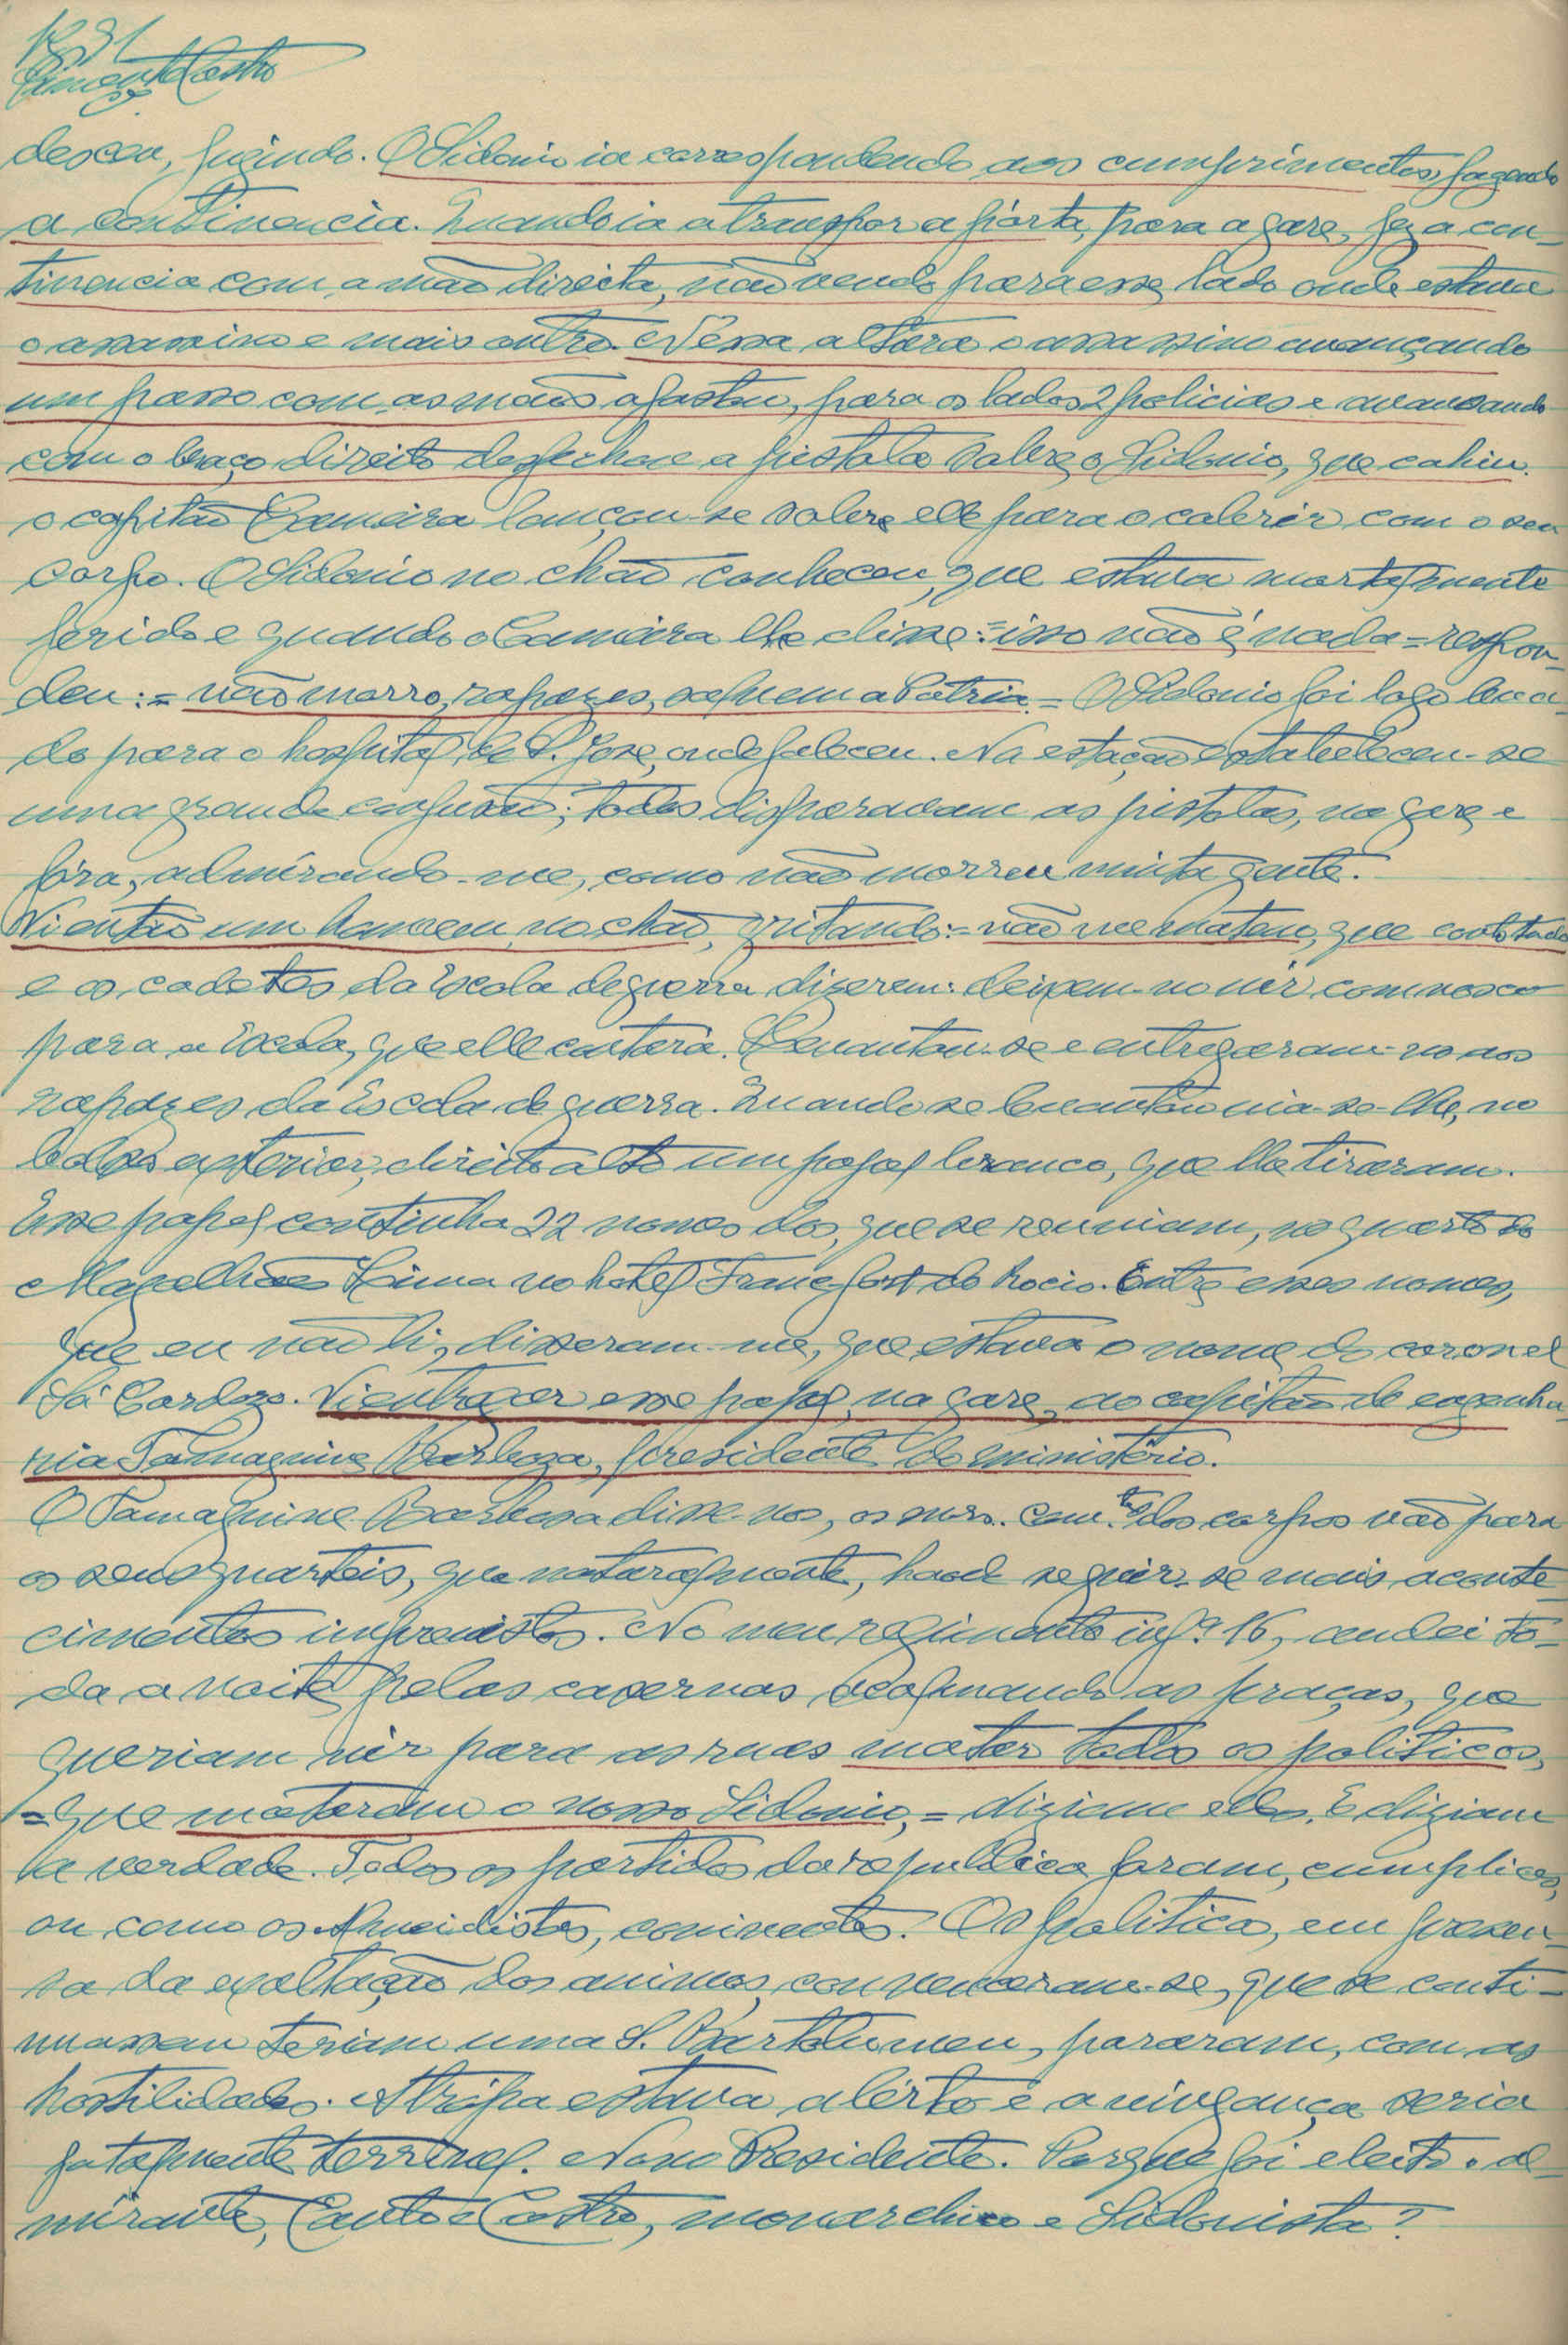 1931
Pimenta Castro
desceu, fugindo. O Sidonio ia correspondendo aos cumprimentos, fazendo
a continencia. Quando ia a transpor a pórta, para a gare, fez a con-
tinencia com a mão direita, não vendo para esse lado onde estava
o assassino e mais outro. Nessa altura o assassino avançando
um passo com as mãos afastou, para os lados 2 policias e avansando
com o braço direito desfechou a pistola sobre o Sidonio, que cahiu.
o capitão Cameira lançou-se sobre elle para o cobrir com o seu
corpo. O Sidonio no chão conheceu, que estava mortalmente
ferido e quando o Cameira lhe disse:=isso não é nada=respon-
deu:=não morro, rapazes, salvem a Patria.= O Sidonio foi logo leva-
do para o hospital de S. José, onde faleceu. Na estação estabeleceu-se
uma grande confusão; todos disparavam as pistolas, na gare e
fóra, admirando-me, como não morreu muita gente.
Vi então um homem no chão, gritando:=não me matem, que conto tudo
e os cadetes da Escola de guerra dizerem: deixem-no vir comnosco
para a Escola, que elle contará. Levantou-se e entregaram-no aos
rapazes da Escola de guerra. Quando se levantou via-se-lhe, no
bolso exterior, direito alto um papel branco, que lhe tiraram.
Esse papel continha 22 nomes dos, que se reuniam, no quarto do
Magalhães Lima no hotel Francfort do Rocio. Entre esses nomes,
que eu não li, disseram-me, que estava o nome do coronel
Sá Cardozo. Vi entregar esse papel, na gare, ao capitão de engenha-
ria Tamagnine Barboza, presidente do ministério.
O Tamagnine Barbosa disse-nos, os snrs. Com.tes dos corpos vão para
os seus quarteis, que naturalmente, hade seguir-se mais aconte-
cimentos imprevistos. No meu regimento inf.ª 16, andei to-
da a noite pelas casernas acalmando as praças, que
queriam vir para as ruas matar todos os politicos,
=que mataram o nosso Sidonio,= diziam elles. E diziam
a verdade. Todos os partidos da republica foram, cumplices,
ou como os Almeidistas, coniventes. Os politicos, em presen-
sa da exaltação dos animos, convenceram-se, que se conti-
nuassem teriam uma S. Bartolomeu, pararam, com as
hostilidades. A trópa estava alérta e a vingança seria
fatalmente terrivel. Novo Presidente. Porque foi eleito o al-
mirante, Canto e Castro, monarchico e Sidonista?